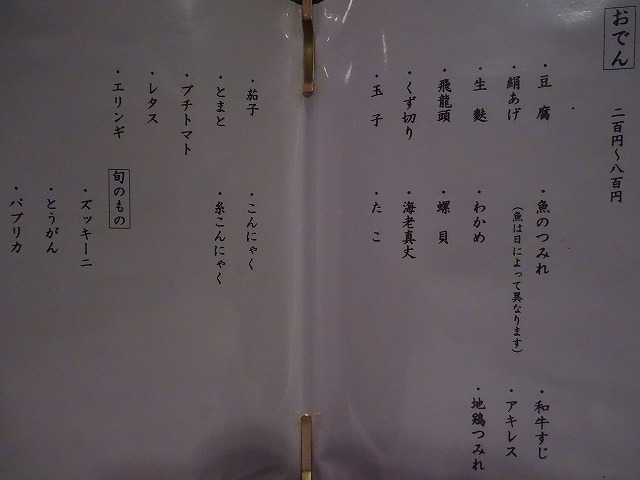 おでん
二百円～八百円
・豆腐
・絹あげ
・生麩
・飛龍頭
・くず切り
・玉子
・魚のつみれ
（魚は日によって異なります）
・わかめ
・螺貝
・海老真丈
・たこ
・和牛すじ
・アキレス
・地鶏つみれ
・茄子
・とまと
・プチトマト
・レタス
・エリンギ
・こんにゃく
・糸こんにゃく
旬のもの
・ズッキーニ
・とうがん
・パプリカ